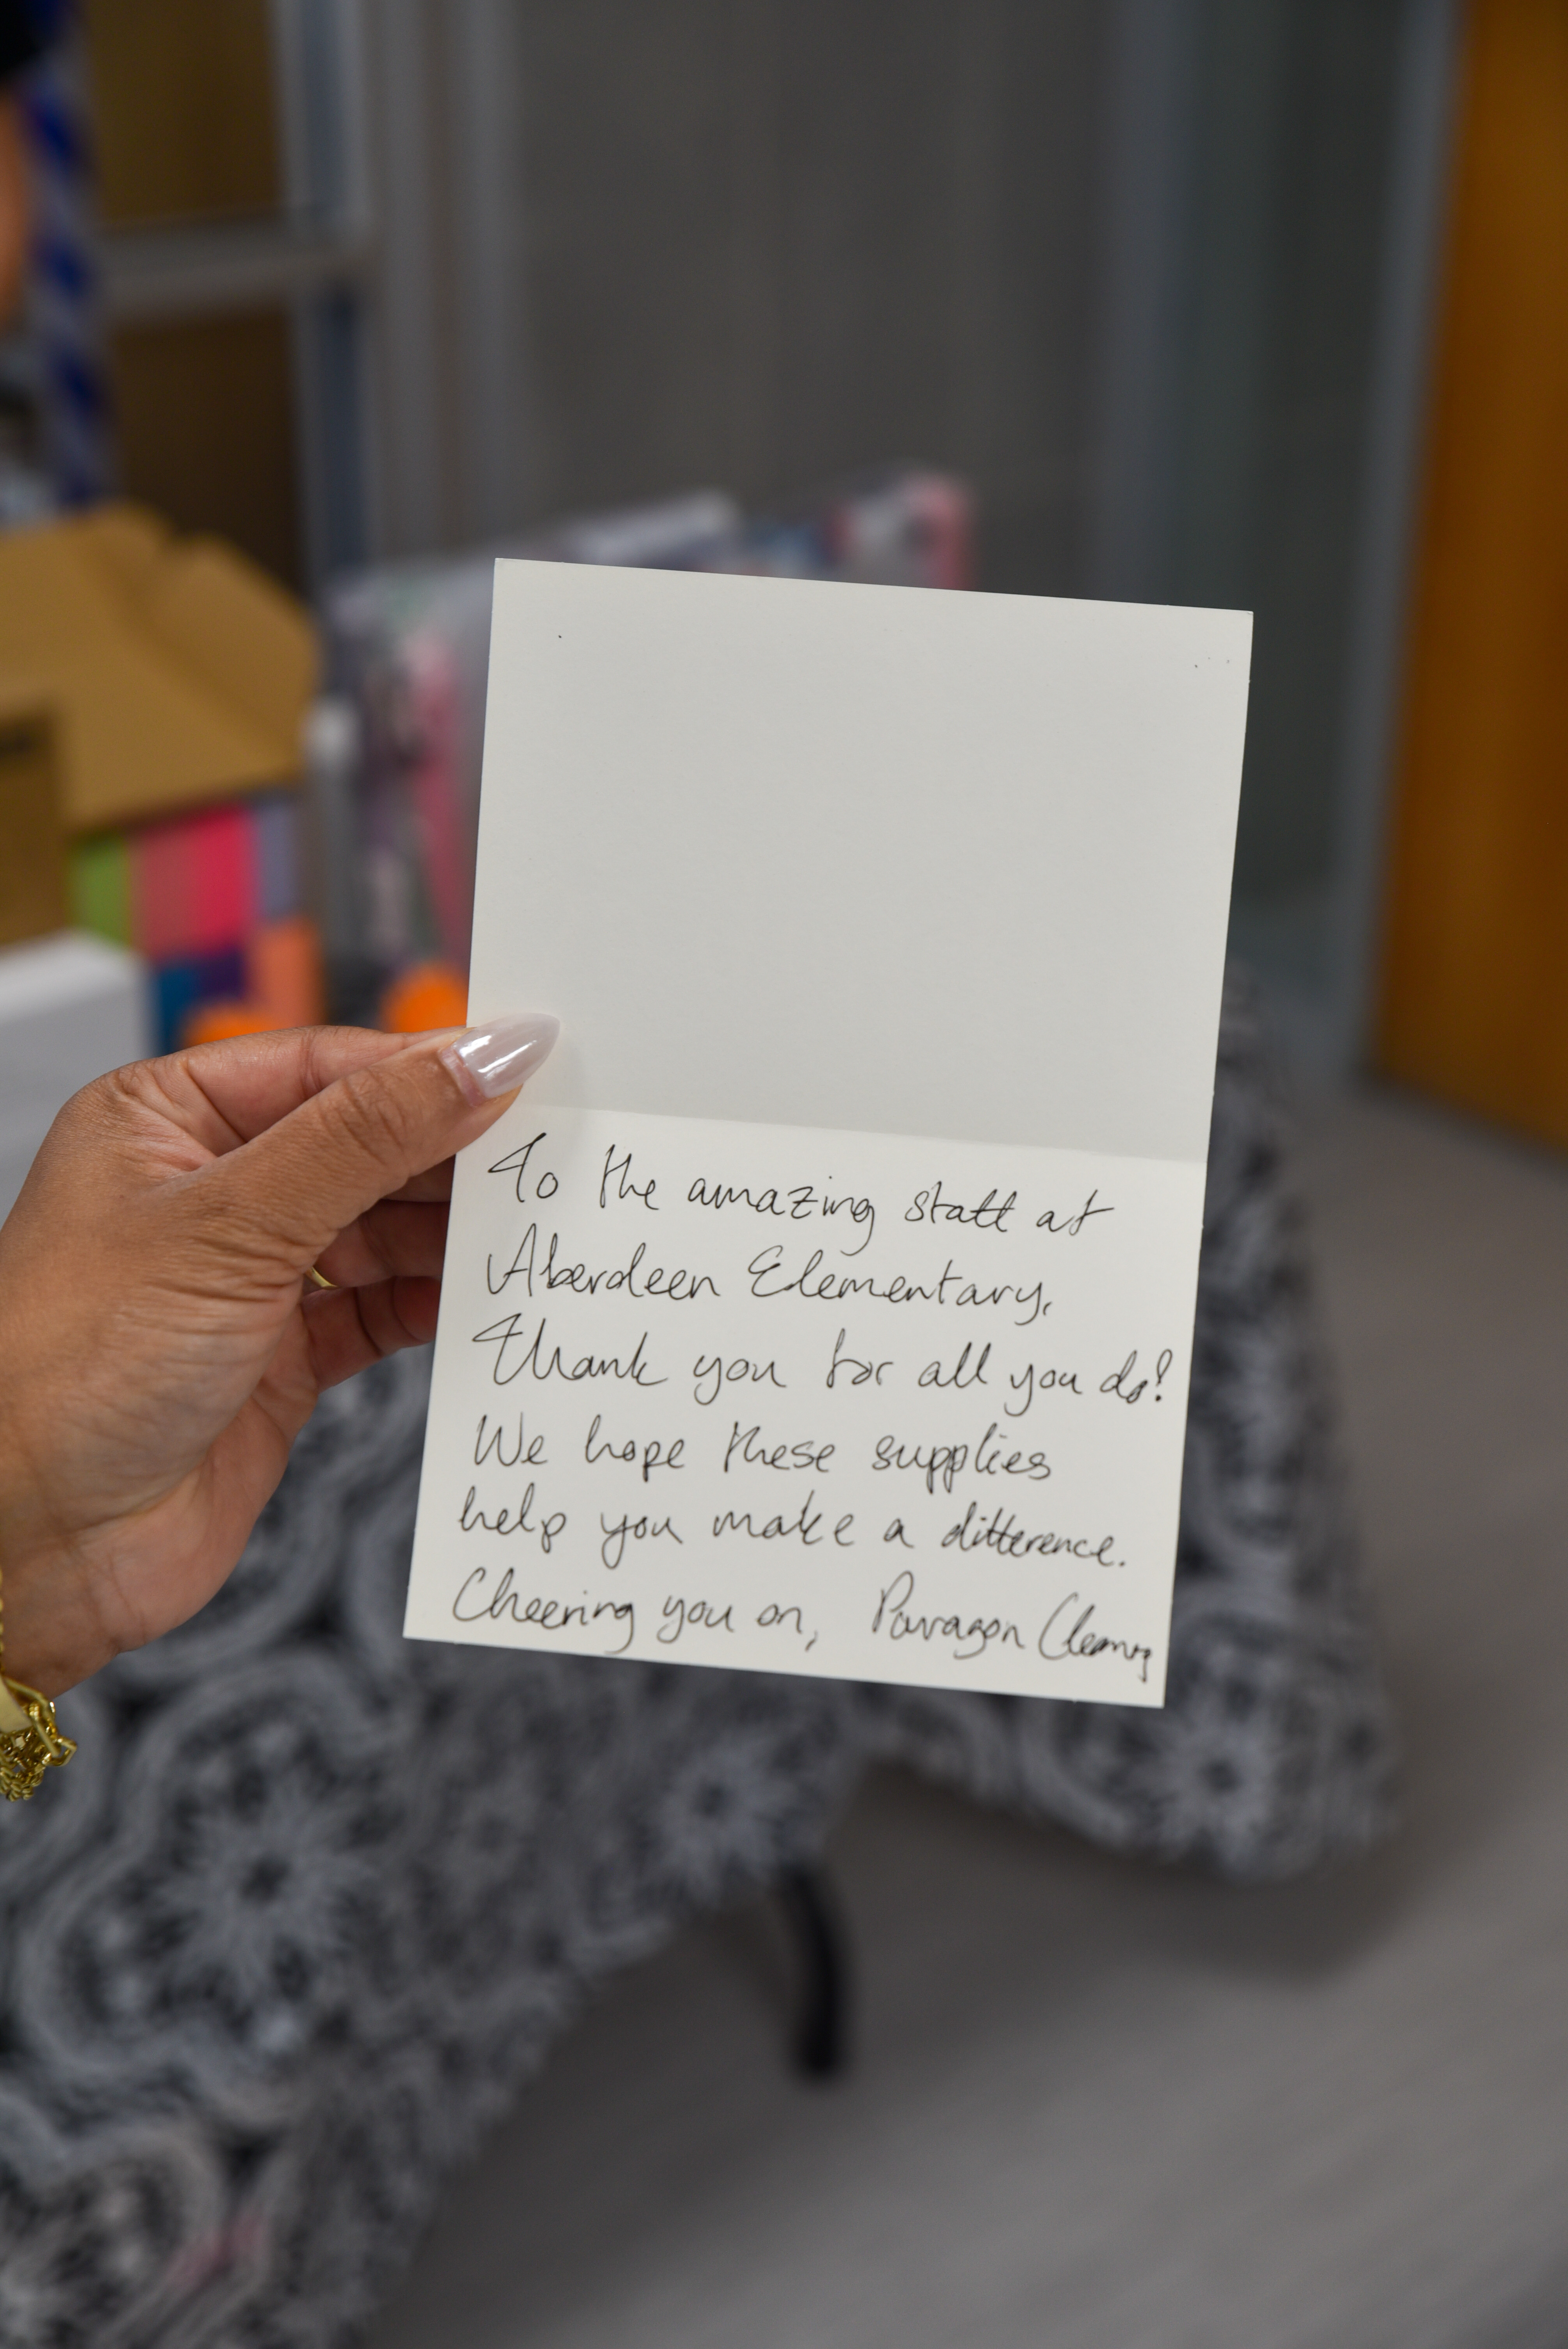 To the amazing staff at
Aberdeen Elementary,
Thank you for all you do!
We hope these supplies
help you make a difference.
Cheering you on, Paragon Cleaning